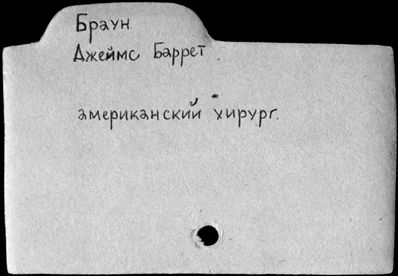 Браун
Джеймс Баррет
американский хирург.